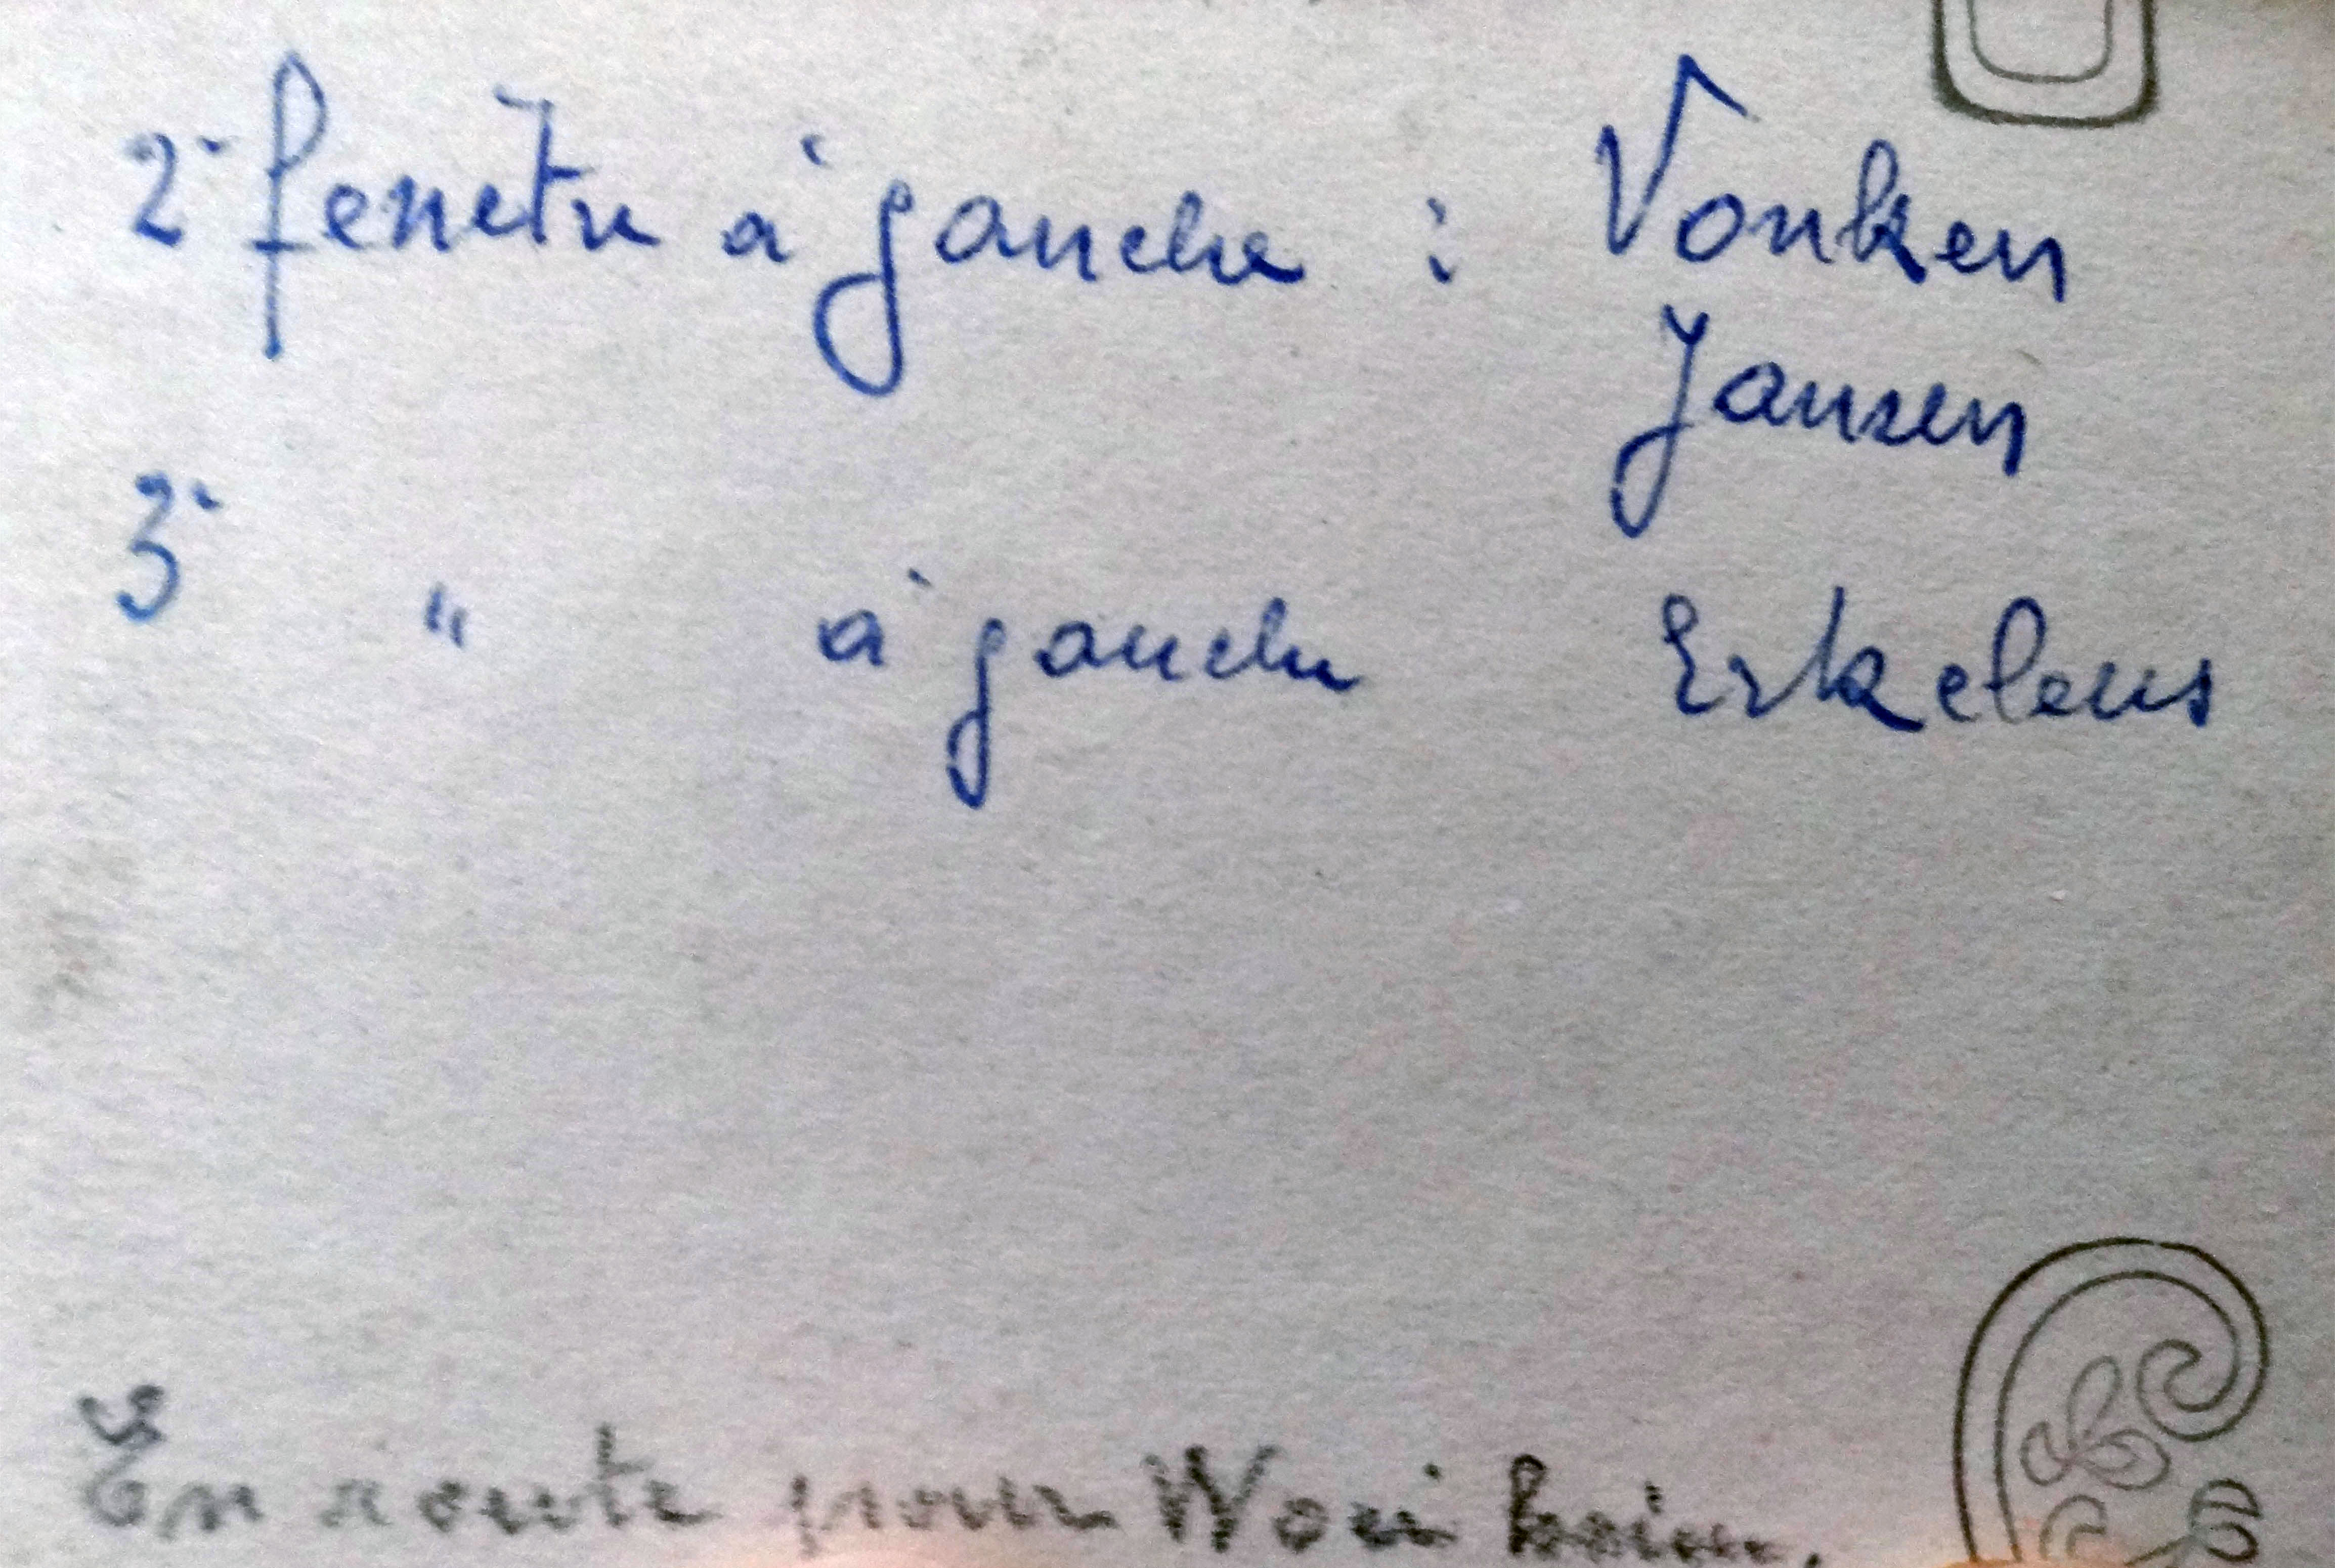 2- fenetre à gauche : Vonken
Jansen
3- " à gauche Erkelens
En route pour